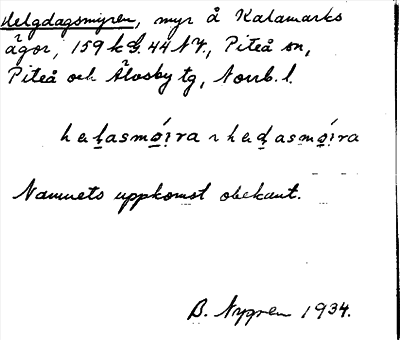 Helgdagsmyren, myr å Kalamarks
ägor, 159 k G. 44 NV., Piteå sn,
Piteå och Älvsby tg, Norrb. l.
Namnets uppkomst obekant.
B. Nygren 1934.